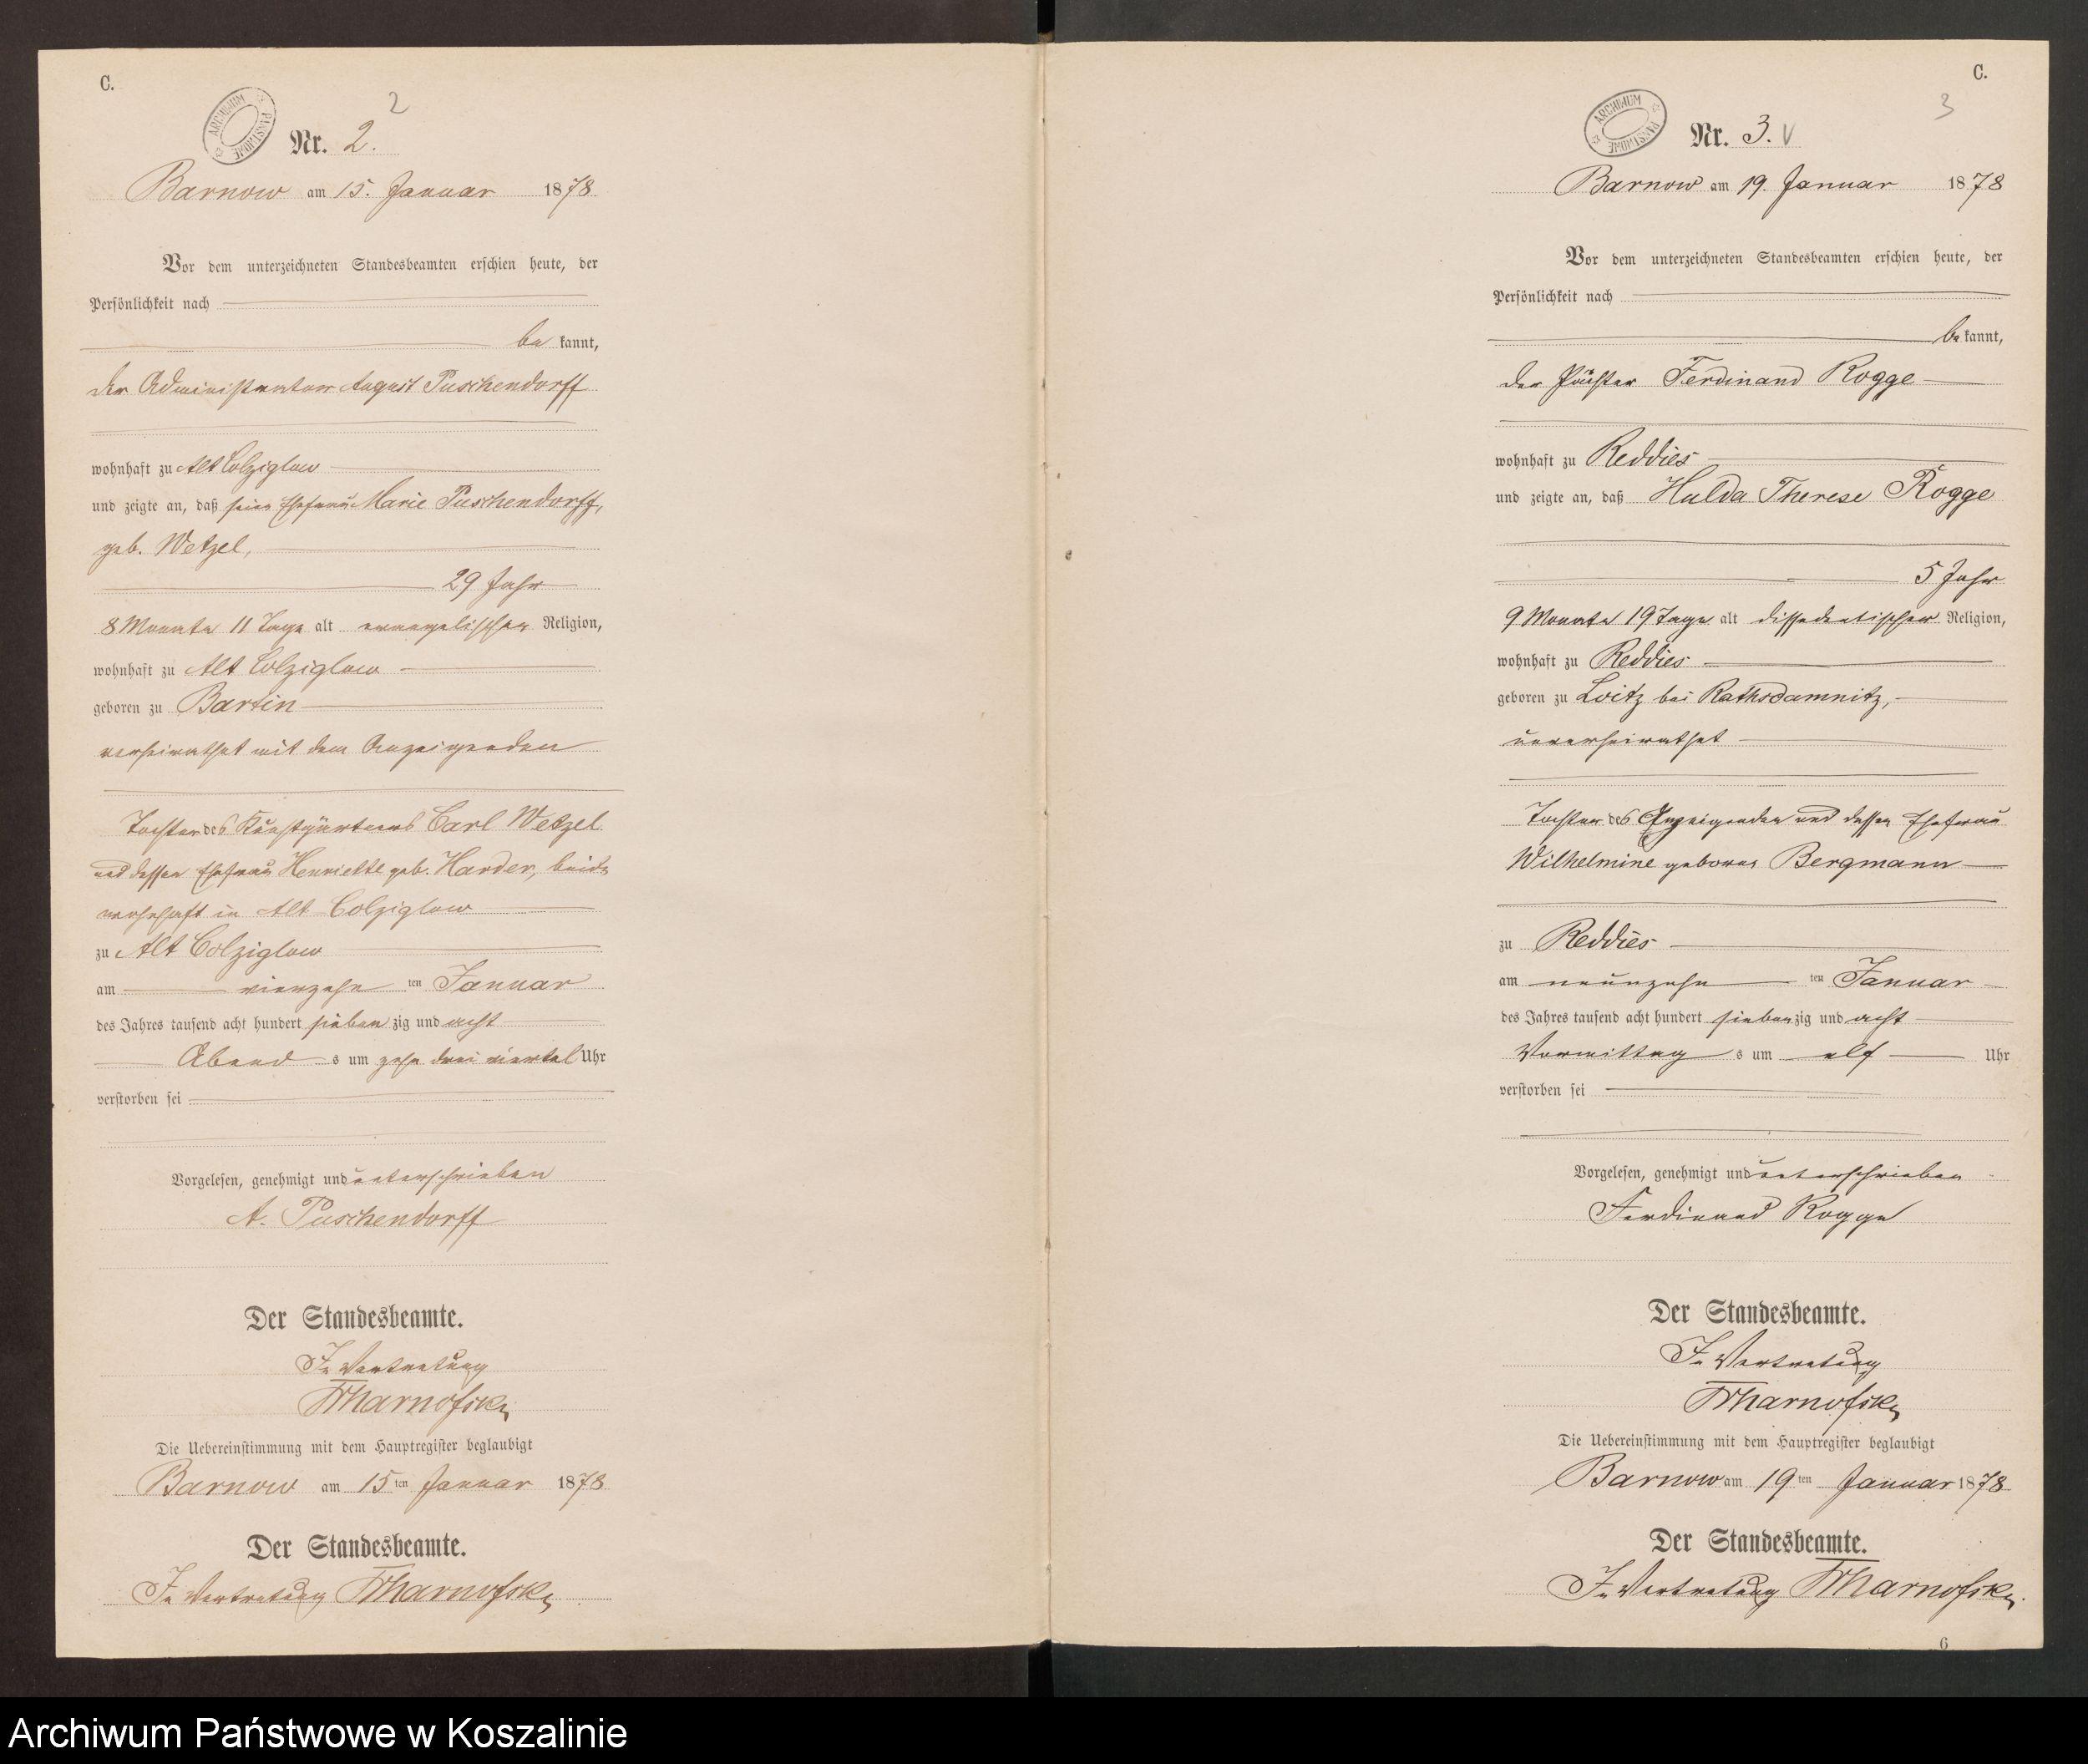 C.
ARCHIWUM PAŃSTWOWE
2
Nr. 2.
Barnow am 15. Januar 1878
Vor dem unterzeichneten Standesbeamten erschien heute, der
Persönlichkeit nach
be kannt,
der Administrator August Puschendorff
wohnhaft zu Alt Colziglow
und zeigte an, daß seine Ehefrau Marie Puschendorff,
geb. Wetzel,
29 Jahr
8 Monate 11 Tage alt evangelischer Religion,
wohnhaft zu Alt Colziglow
geboren zu Bartin
verheirathet mit dem Anzeigenden
Tochter des Kunstgärtners Carl Wetzel
und dessen Ehefrau Henriette geb. Harder, beide
wohnhaft in Alt Colziglow
zu Alt Colziglow
am vierzehn ten Januar
des Jahres tausend acht hundert sieben zig und acht
Abend s um zehn drei viertel Uhr
verstorben sei
Vorgelesen, genehmigt und unterschrieben
A. Puschendorff
Der Standesbeamte.
In Vertretung
Die Uebereinstimmung mit dem Hauptregister beglaubigt
Barnow am 15 ten Januar 1878
Der Standesbeamte.
In Vertretung
C.
ARCHIWUM PAŃSTWOWE
3
Nr. 3. v
Barnow am 19. Januar 1878
Vor dem unterzeichneten Standesbeamten erschien heute, der
Persönlichkeit nach
be kannt,
der Pächter Ferdinand Rogge
wohnhaft zu Reddies
und zeigte an, daß Hulda Therese Rogge
5 Jahr
9 Monate 19 Tage alt dissedentischer Religion,
wohnhaft zu Reddies
geboren zu Loitz bei Rathsdamnitz,
unverheirathet
Tochter des Anzeigenden und dessen Ehefrau
Wilhelmine geborne Bergmann
zu Reddies
am neunzehn ten Januar
des Jahres tausend acht hundert sieben zig und acht
Vormittag s um elf Uhr
verstorben sei
Vorgelesen, genehmigt und unterschrieben
Ferdinand Rogge
Der Standesbeamte.
In Vertretung
Die Uebereinstimmung mit dem Hauptregister beglaubigt
Barnow am 19 ten Januar 1878
Der Standesbeamte.
In Vertretung
6
Archiwum Państwowe w Koszalinie